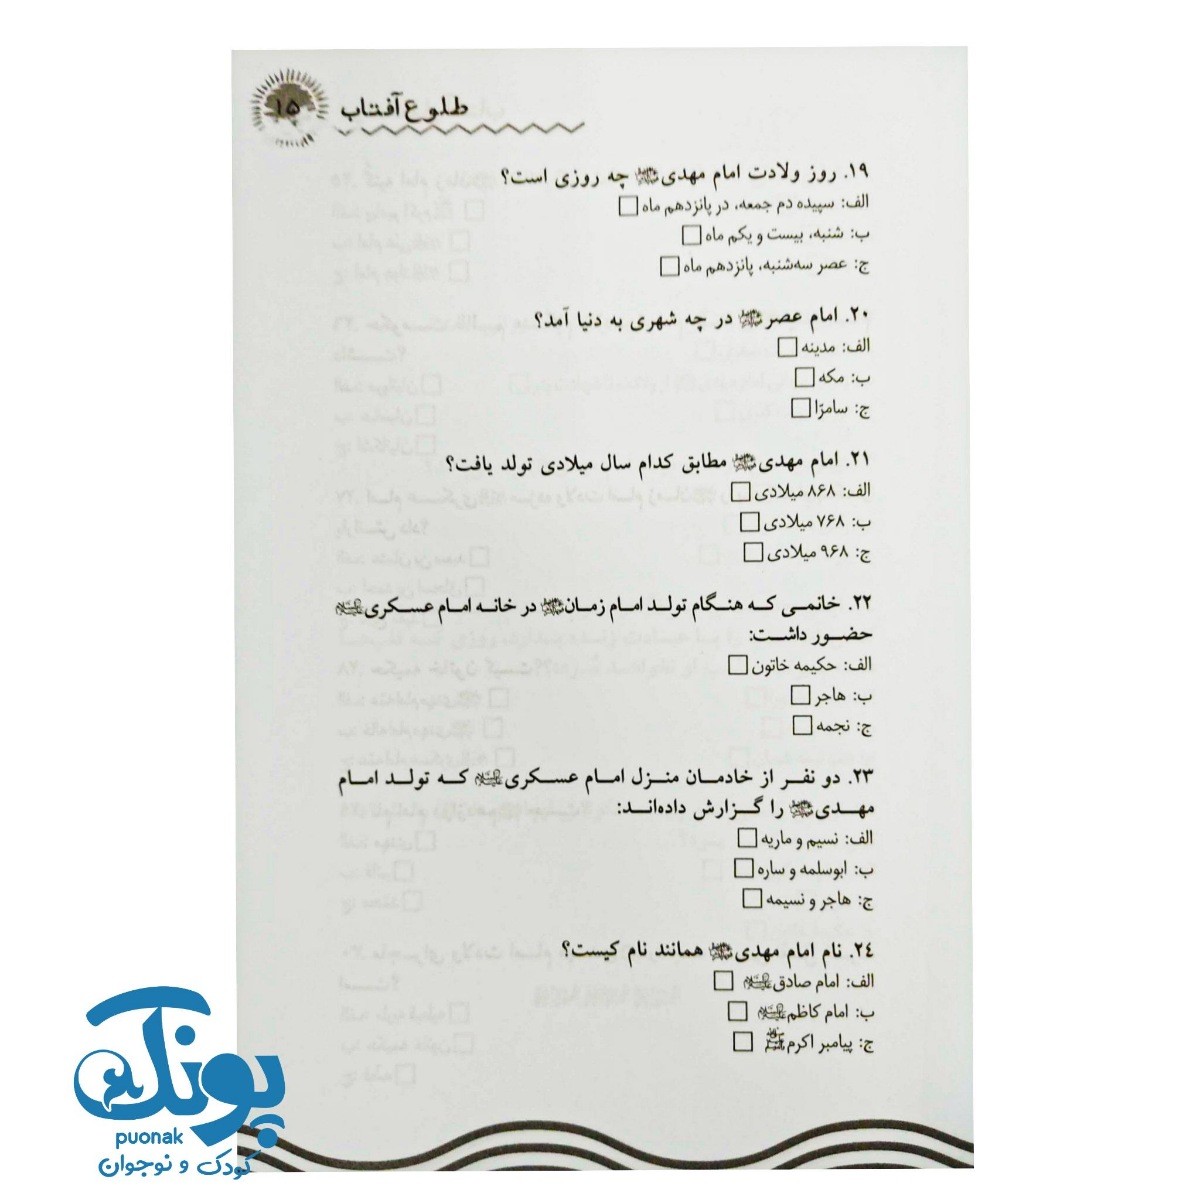 ۱۵
طلوع آفتاب
۱۹. روز ولادت امام مهدی چه روزی است؟
الف: سپیده دم جمعه، در پانزدهم ماه
ب: شنبه، بیست و یکم ماه
ج: عصر سه‌شنبه، پانزدهم ماه
۲۰. امام عصر در چه شهری به دنیا آمد؟
الف: مدینه
ب: مکه
ج: سامرّا
۲۱. امام مهدی مطابق کدام سال میلادی تولد یافت؟
الف: ۸۶۸ میلادی
ب: ۷۶۸ میلادی
ج: ۹۶۸ میلادی
۲۲. خانمی که هنگام تولد امام زمان در خانه امام عسکری
حضور داشت:
الف: حکیمه خاتون
ب: هاجر
ج: نجمه
۲۳. دو نفر از خادمان منزل امام عسکری که تولد امام
مهدی را گزارش داده‌اند:
الف: نسیم و ماریه
ب: ابوسلمه و ساره
ج: هاجر و نسیمه
۲۴. نام امام مهدی همانند نام کیست؟
الف: امام صادق
ب: امام کاظم
ج: پیامبر اکرم
پونک
puonak
کودک و نوجوان